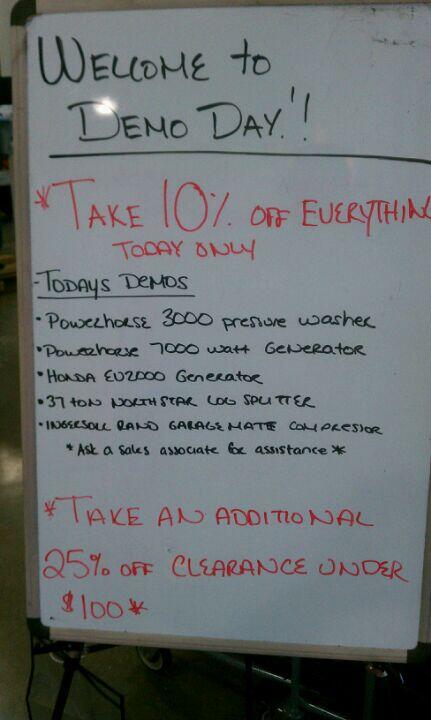 WELCOME to
DEMO DAY!!
*TAKE 10% OFF EVERYTHING
TODAY ONLY
-TODAYS DEMOS
• Powerhorse 3000 pressure washer
• Powerhorse 7000 watt GENERATOR
• HONDA EU2000 Generator
• 37 ton NORTHSTAR LOG SPLITTER
• INGERSOLL RAND GARAGE MATE COMPRESSOR
* Ask a sales associate for assistance *
*TAKE AN ADDITIONAL
25% OFF CLEARANCE UNDER
$100*